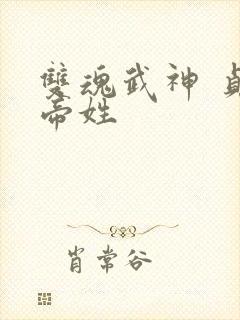 雙魂武神 貞
帝姓
肖常谷